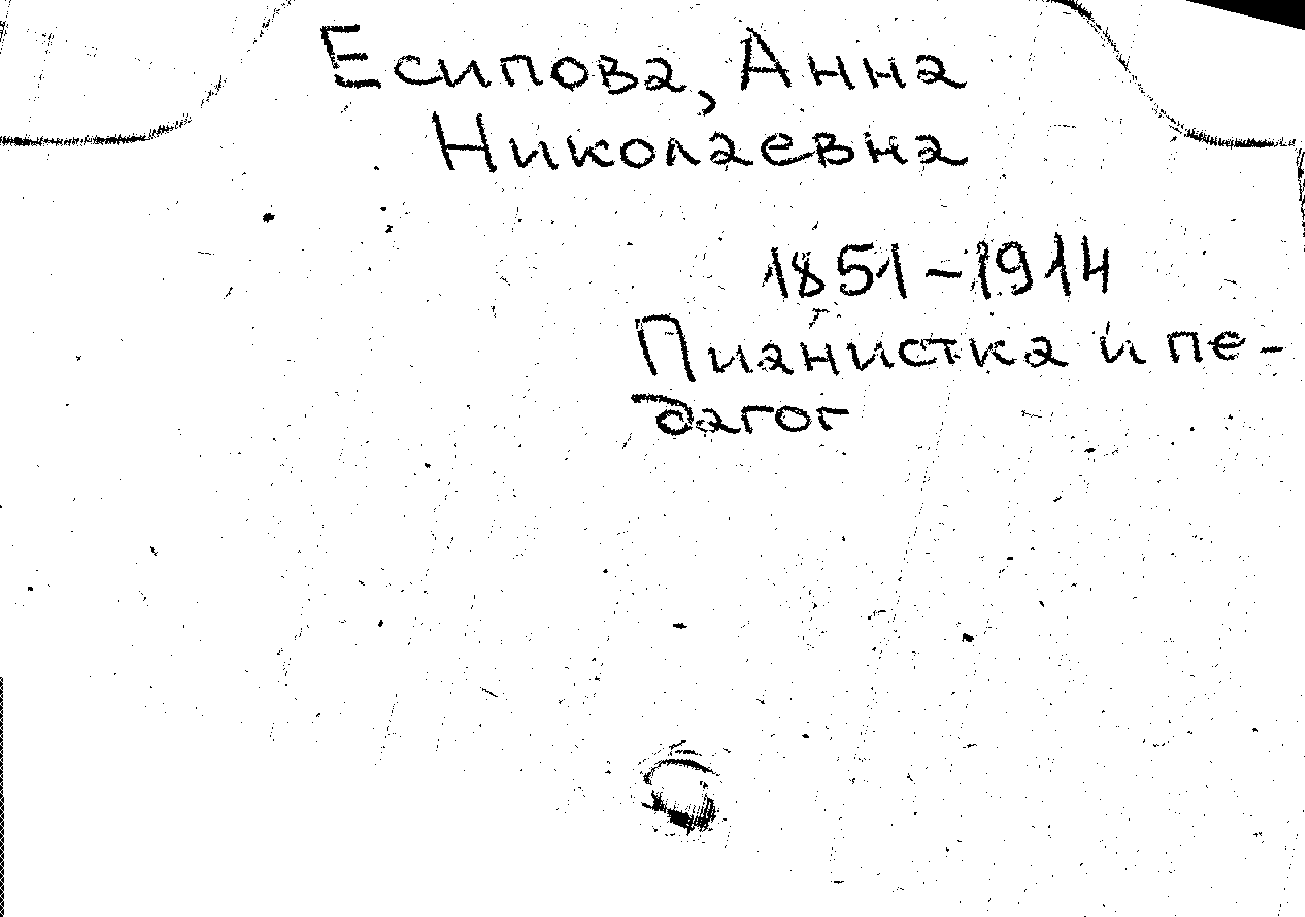 Есипова, Анна
Николаевна
1851-1914
Пианистка и пе-
дагог